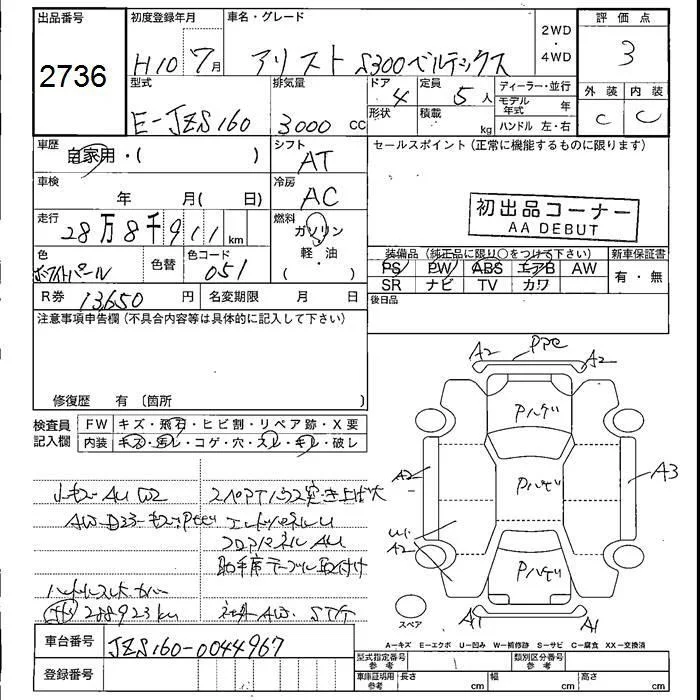 出品番号
2736
初度登録年月
H10 7月
車名・グレード
アリスト S300ベルテックス
2WD
・
4WD
評価点
3
外装 内装
C C
型式
E-JZS160
排気量
3000 cc
ドア
4
形状
定員
5人
積載
kg
ディーラー・並行
モデル年式 年
ハンドル 左・右
車歴
自家用・( )
シフト
AT
セールスポイント(正常に機能するものに限ります)
車検
年 月( 日)
冷房
AC
初出品コーナー
AA DEBUT
走行
28万8千911 km
燃料
ガソリン
・
軽・油
( )
色
ホワイトパール
色替
色コード
051
装備品(純正品に限り○をつけて下さい)
PS PW ABS エアB AW
SR ナビ TV カワ
新車保証書
有・無
R券 13,650 円
名変期限 月 日
後日品
注意事項申告欄(不具合内容等は具体的に記入して下さい)
修復歴 有〔箇所 〕
検査員
記入欄
FW キズ・飛石・ヒビ割・リペア跡・X要
内装 キズ・汚レ・コゲ・穴・スレ・キレ・破レ
A2 A2
Pハゲ
Pハゲ
Pハゲ
A2
A3
A2
A1 A1
スペア
AU W2
エンドパネルU
フロアパネルAU
助手席テーブル取付け
288923km
社外AW
車台番号 JZS160-0044967
登録番号
A=キズ E=エクボ U=凹み W=補修跡 S=サビ C=腐食 XX=交換済
型式指定番号
参考
類別区分番号
参考
車庫証明用
参考
長さ cm 幅 cm 高さ cm